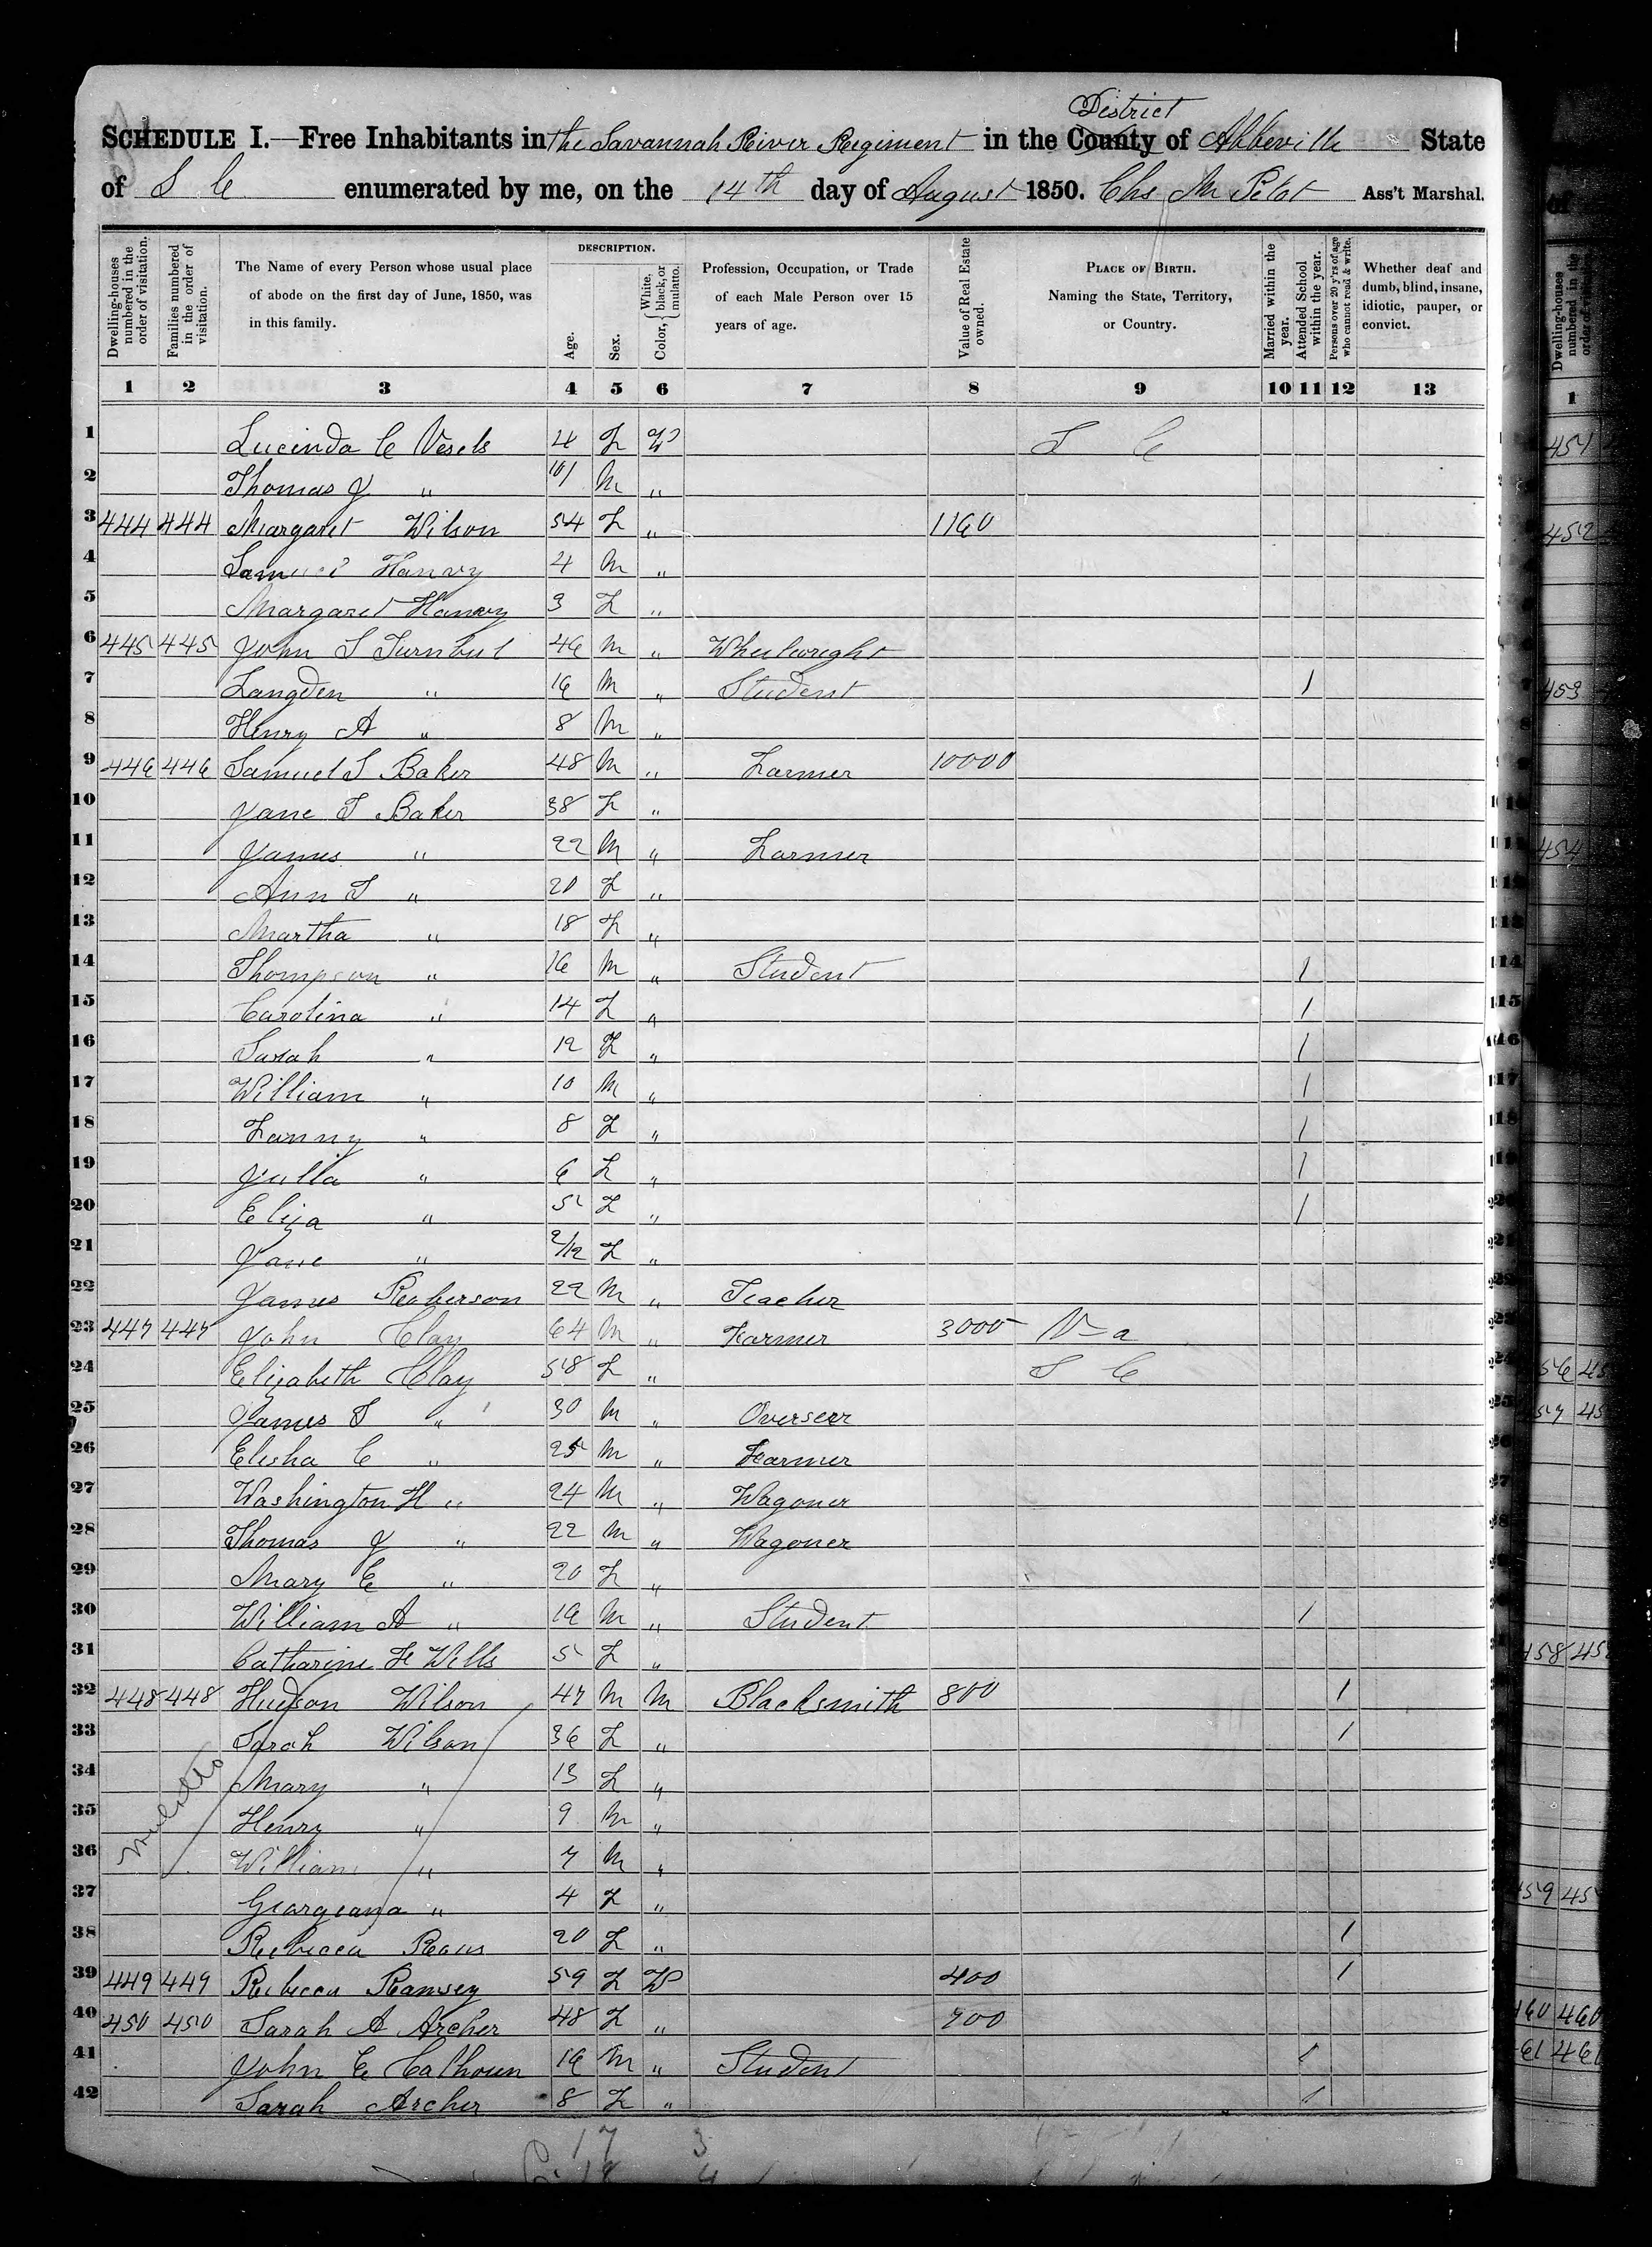 District
SCHEDULE I.—Free Inhabitants in the Savannah River Regiment in the County of Abbeville State
of S C enumerated by me, on the 14th day of August 1850. Chs M Pelot Ass't Marshal.
Dwelling-houses numbered in the order of visitation.
Families numbered in the order of visitation.
The Name of every Person whose usual place of abode on the first day of June, 1850, was in this family.
DESCRIPTION.
Age.
Sex.
Color, { White, black, or mulatto.
Profession, Occupation, or Trade of each Male Person over 15 years of age.
Value of Real Estate owned.
PLACE OF BIRTH. Naming the State, Territory, or Country.
Married within the year.
Attended School within the year.
Persons over 20 y'rs of age who cannot read & write.
Whether deaf and dumb, blind, insane, idiotic, pauper, or convict.
1 2 3 4 5 6 7 8 9 10 11 12 13
1 Lucinda C Vesels 4 F W S C
2 Thomas J " M "
3 444 444 Margaret Wilson 54 F " 1160
4 Samuel Hanvy 4 M "
5 Margaret Hanvy 3 F "
6 445 445 John S Turnbul 46 M " Wheelwright
7 Langden " 16 M " Student 1
8 Henry A " 8 M "
9 446 446 Samuel S Baker 48 M " Farmer 10000
10 Jane T Baker 38 F "
11 James " 22 M " Farmer
12 Ann T " 20 F "
13 Martha " 18 F "
14 Thompson " 16 M " Student 1
15 Carolina " 14 F " 1
16 Sarah " 12 F " 1
17 William " 10 M " 1
18 Fanny " 8 F " 1
19 Julia " 6 F " 1
20 Eliza " 5 F " 1
21 Jane " 2/12 F "
22 James Roberson 22 M " Teacher
23 447 447 John Clay 64 M " Farmer 3000 Va
24 Elizabeth Clay 58 F " S C
25 James T " 30 M " Overseer
26 Elisha C " 25 M " Farmer
27 Washington H " 24 M " Wagoner
28 Thomas J " 22 M " Wagoner
29 Mary E " 20 F "
30 William A " 16 M " Student 1
31 Catharine F Wells 5 F "
32 448 448 Hudson Wilson 47 M M Blacksmith 800 1
33 Sarah Wilson 36 F " 1
34 Mary " 13 F "
35 Henry " 9 M "
36 William " 7 M "
37 Georgeana " 4 F "
38 Rebecca 20 F " 1
mulatto
39 449 449 Rebecca Ramsey 59 F W 400 1
40 450 450 Sarah A Archer 48 F " 900
41 John E Calhoun 16 M " Student 1
42 Sarah Archer 8 F " 1
17 3
18 4
Dwelling-houses numbered in the order of
1
451
452
453
454
56 45
57 45
458 45
459 45
460 460
461 461